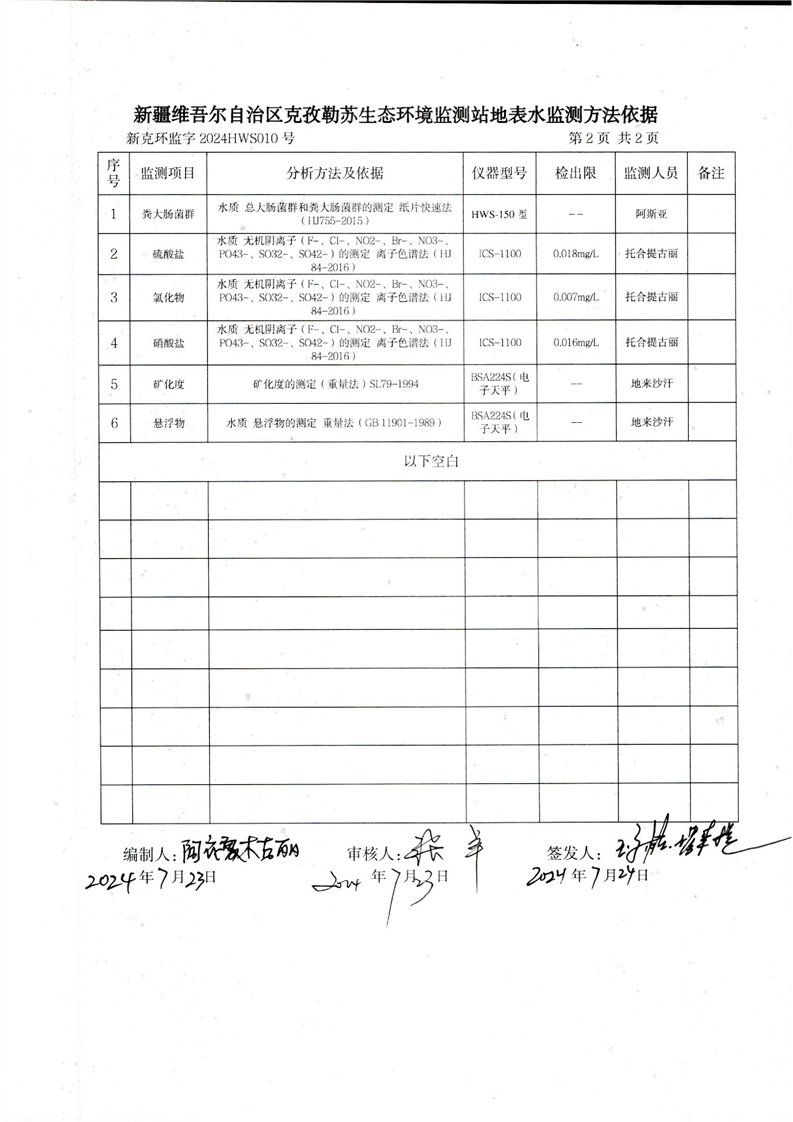 新疆维吾尔自治区克孜勒苏生态环境监测站地表水监测方法依据
新克环监字 2024HWS010 号 第 2 页 共 2 页
序号 监测项目 分析方法及依据 仪器型号 检出限 监测人员 备注
1 粪大肠菌群 水质 总大肠菌群和粪大肠菌群的测定 纸片快速法（HJ755-2015） HWS-150 型 -- 阿斯亚
2 硫酸盐 水质 无机阴离子（F-、Cl-、NO2-、Br-、NO3-、PO43-、SO32-、SO42-）的测定 离子色谱法（HJ 84-2016） ICS-1100 0.018mg/L 托合提古丽
3 氯化物 水质 无机阴离子（F-、Cl-、NO2-、Br-、NO3-、PO43-、SO32-、SO42-）的测定 离子色谱法（HJ 84-2016） ICS-1100 0.007mg/L 托合提古丽
4 硝酸盐 水质 无机阴离子（F-、Cl-、NO2-、Br-、NO3-、PO43-、SO32-、SO42-）的测定 离子色谱法（HJ 84-2016） ICS-1100 0.016mg/L 托合提古丽
5 矿化度 矿化度的测定（重量法）SL79-1994 BSA224S（电子天平） -- 地来沙汗
6 悬浮物 水质 悬浮物的测定 重量法（GB 11901-1989） BSA224S（电子天平） -- 地来沙汗
以下空白
编制人： 审核人： 签发人：
2024年7月23日 2024年7月23日 2024年7月24日